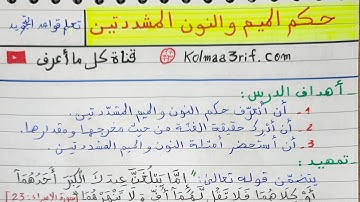 حكم الميم والنون المشددتين
تعلم قواعد التجويد
قناة كل ما أعرف
Kolmaa3rif.com
- أهداف الدرس:
1 - أن أتعرف حكم النون والميم المشددتين.
2 - أن أدرك حقيقة الغنة من حيث مخرجها ومقدارها.
3 - أن أستحضر أمثلة النون والميم المشددتين.
تمهيد:
يتضمن قوله تعالى: إِمَّا يَبْلُغَنَّ عِندَكَ الْكِبَرَ أَحَدُهُمَا
أَوْ كِلَاهُمَا فَلَا تَقُل لَّهُمَا أُفٍّ وَلَا تَنْهَرْهُمَا [سورة الإسراء: 23]